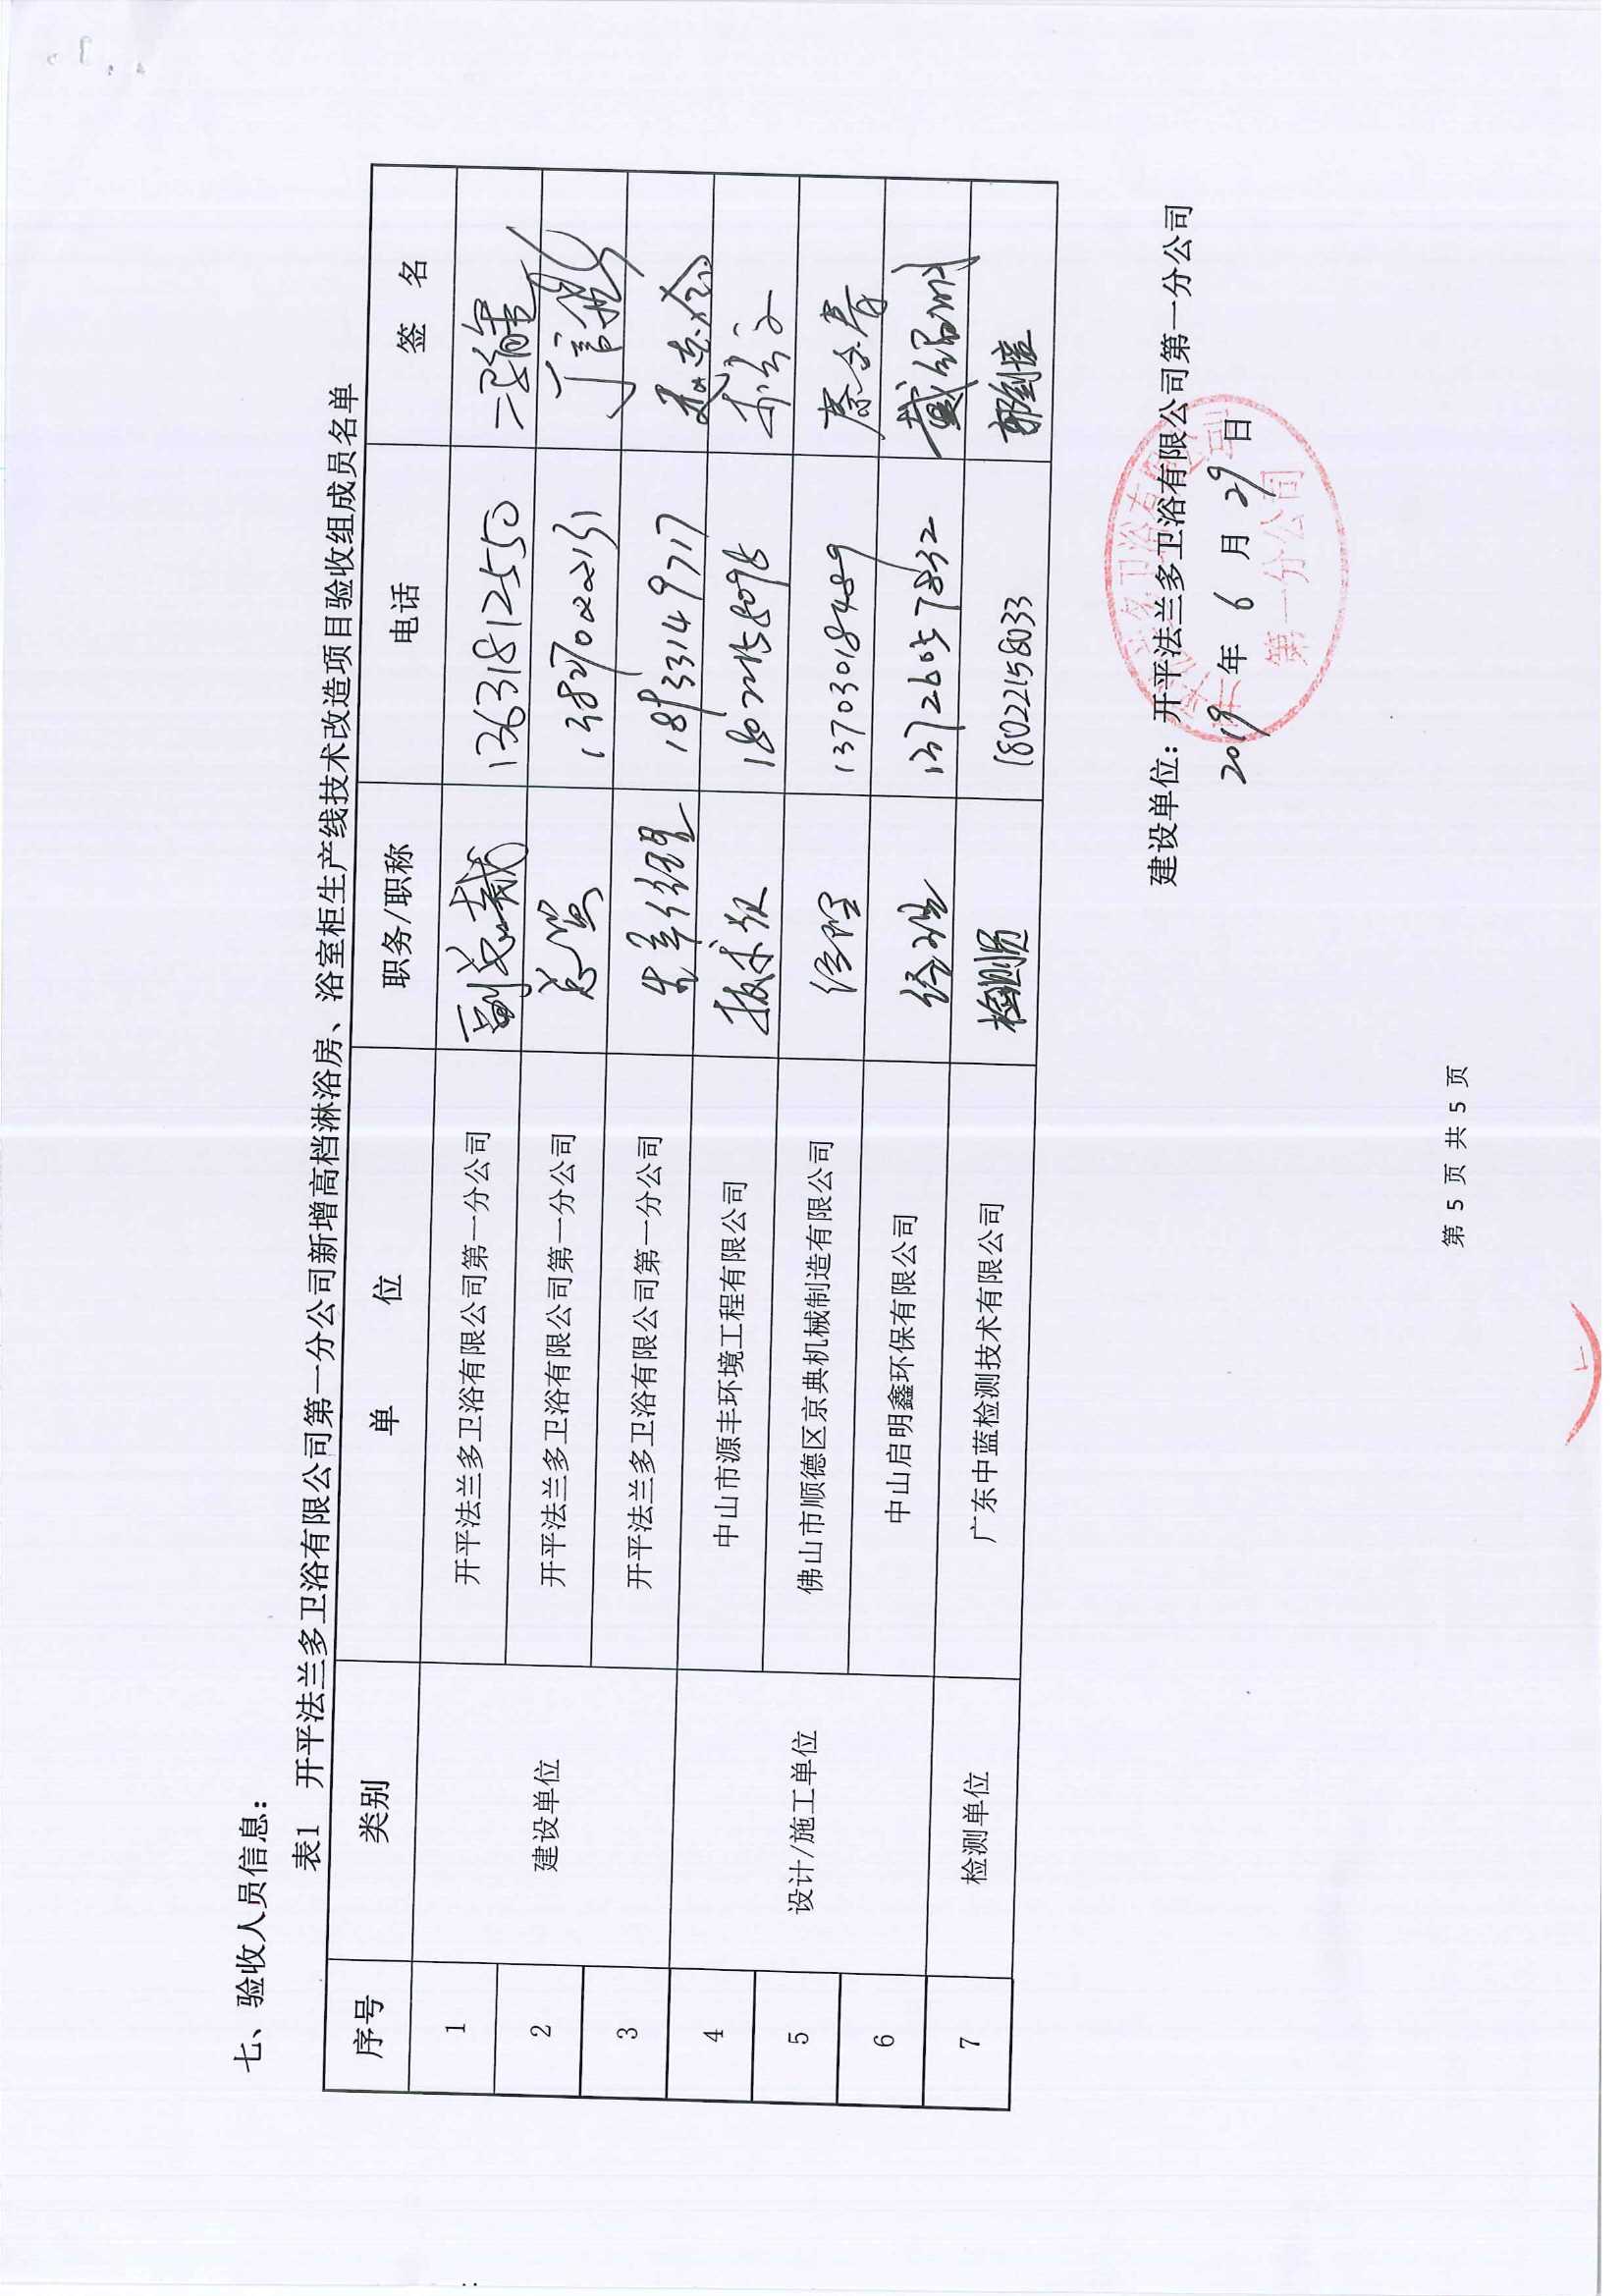 七、验收人员信息：
表1 开平法兰多卫浴有限公司第一分公司新增高档淋浴房、浴室柜生产线技术改造项目验收组成员名单
序号 类别 单 位 职务/职称 电话 签 名
1 建设单位 开平法兰多卫浴有限公司第一分公司 副总裁 13631812550
2 开平法兰多卫浴有限公司第一分公司 总监
3 开平法兰多卫浴有限公司第一分公司 经理 18933149717
4 设计/施工单位 中山市源丰环境工程有限公司 技术员 18022158098
5 佛山市顺德区京典机械制造有限公司 经理 13703018489
6 中山启明鑫环保有限公司 经理 13726057832
7 检测单位 广东中蓝检测技术有限公司 检测员 18022158033
建设单位：开平法兰多卫浴有限公司第一分公司
2019年6月29日
第一分公司
第 5 页 共 5 页